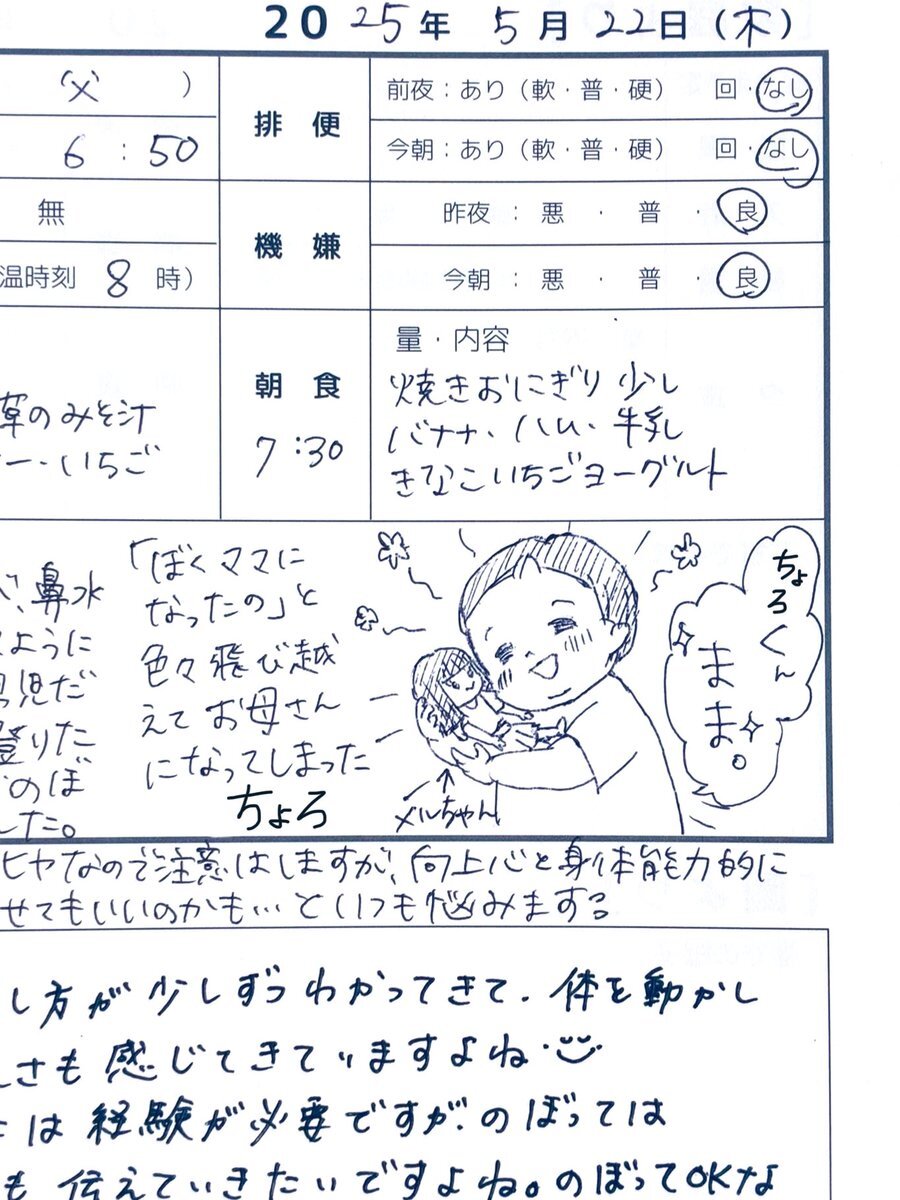 2025年 5月 22日（木）
父 ）
6 : 50
無
温時刻 8 時）
排 便
前夜：あり（軟・普・硬） 回・なし
今朝：あり（軟・普・硬） 回・なし
機 嫌
昨夜 ： 悪 ・ 普 ・ 良
今朝 ： 悪 ・ 普 ・ 良
草のみそ汁
ー・いちご
朝 食
7:30
量・内容
焼きおにぎり 少し
バナナ・ハム・牛乳
きなこいちごヨーグルト
、鼻水
ように
児だ
登りた
のぼ
した。
「ぼくママに
なったの」と
色々飛び越
えてお母さん
になってしまった
ちょろ
メルちゃん
ちょろくん
まま。
ヒヤなので注意はしますが、向上心と身体能力的に
せてもいいのかも…といつも悩みまする
し方が少しずつわかってきて、体を動かし
さも感じてきていますよね
は経験が必要ですが、のぼっては
も伝えていきたいですよね。のぼってOKな